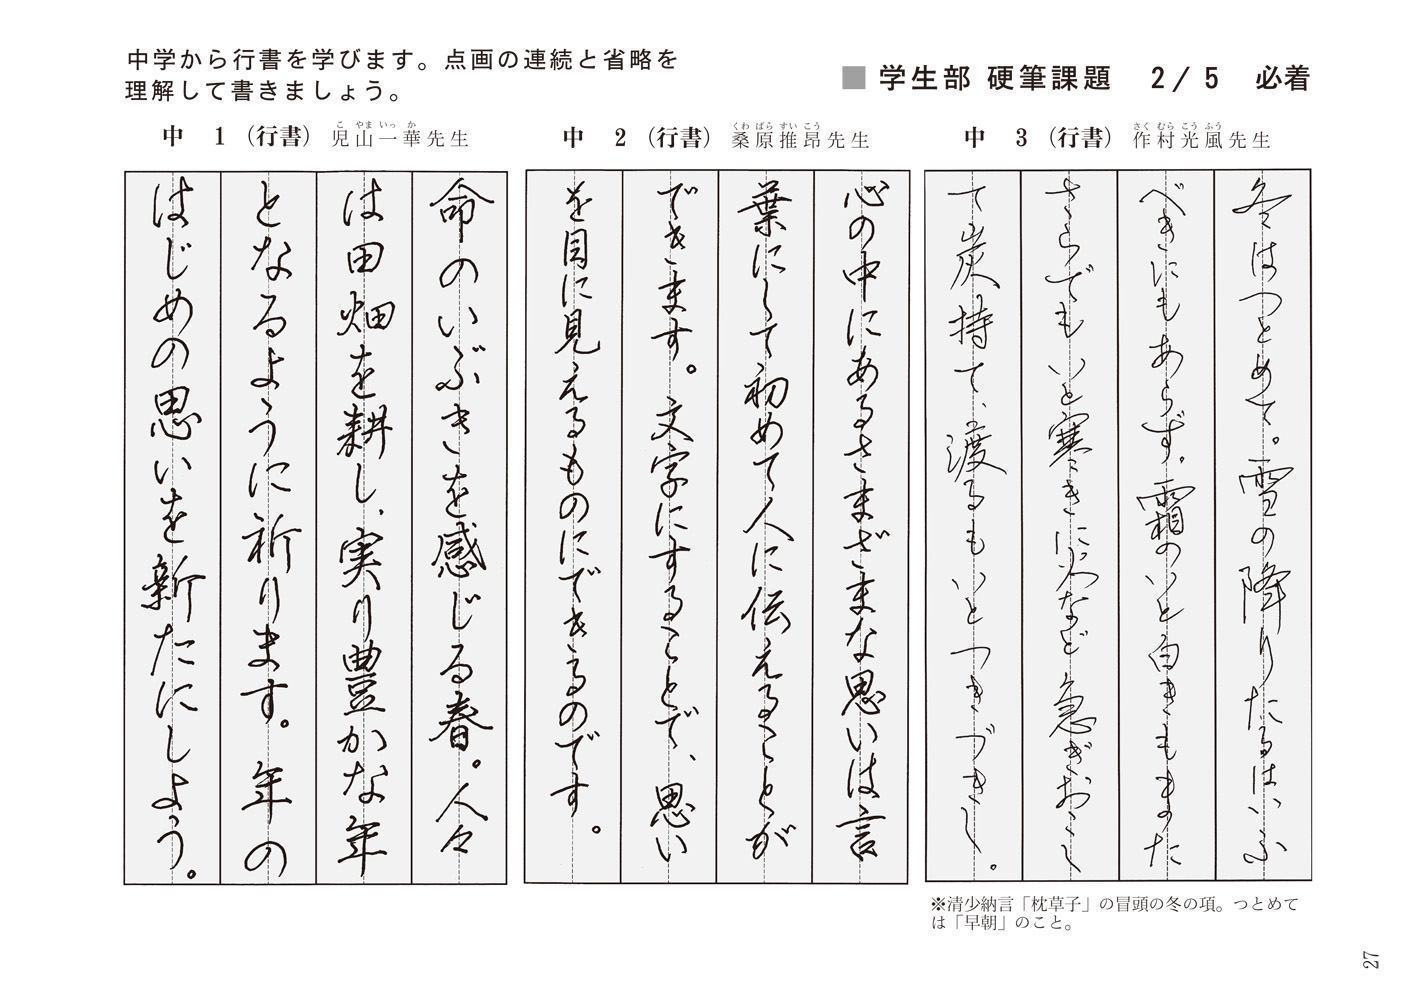 中学から行書を学びます。点画の連続と省略を
理解して書きましょう。
■ 学生部 硬筆課題 2/5 必着
中 1 (行書) 児山一華先生
こ やま いっ か
命のいぶきを感じる春。人々
は田畑を耕し、実り豊かな年
となるように祈ります。年の
はじめの思いを新たにしよう。
中 2 (行書) 桑原推昂先生
くわ ばら すい こう
心の中にあるさまざまな思いは言
葉にして初めて人に伝えることが
できます。文字にすることで、思い
を目に見えるものにできるのです。
中 3 (行書) 作村光風先生
さく むら こう ふう
冬はつとめて。雪の降りたるはいふ
べきにもあらず。霜のいと白きもまた
さらでもいと寒きに火など急ぎおこし
て炭持て、渡るもいとつきづきし。
※清少納言「枕草子」の冒頭の冬の項。つとめて
は「早朝」のこと。
27